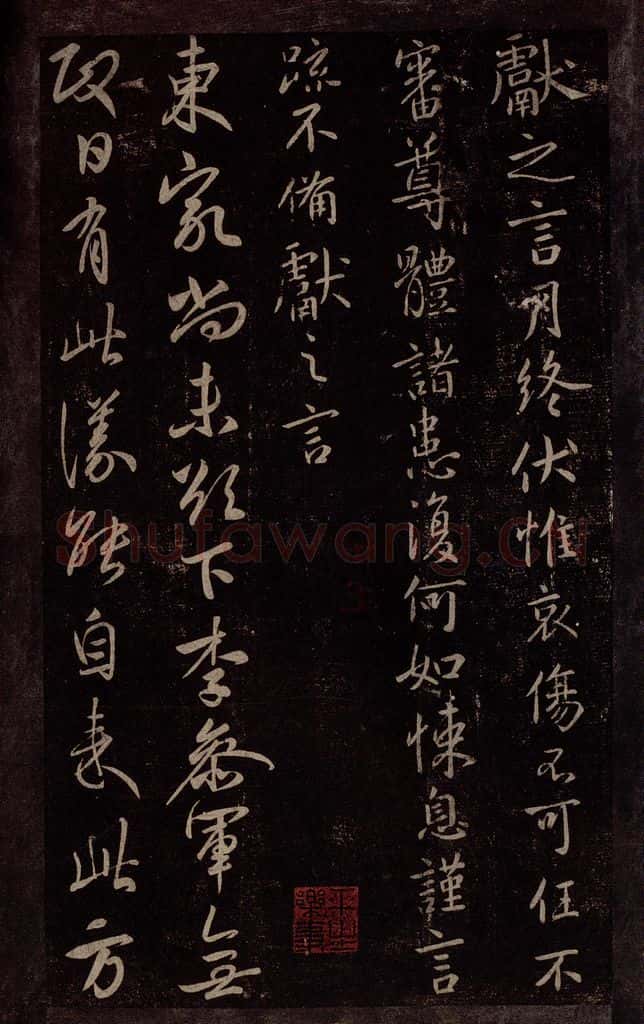 獻之言月終伏惟哀傷不可任不
審尊體諸患復何如悚息謹言
疏不備獻之言
東家尚未欲下李參軍
日有此議能自来此方
Shufawang.cn